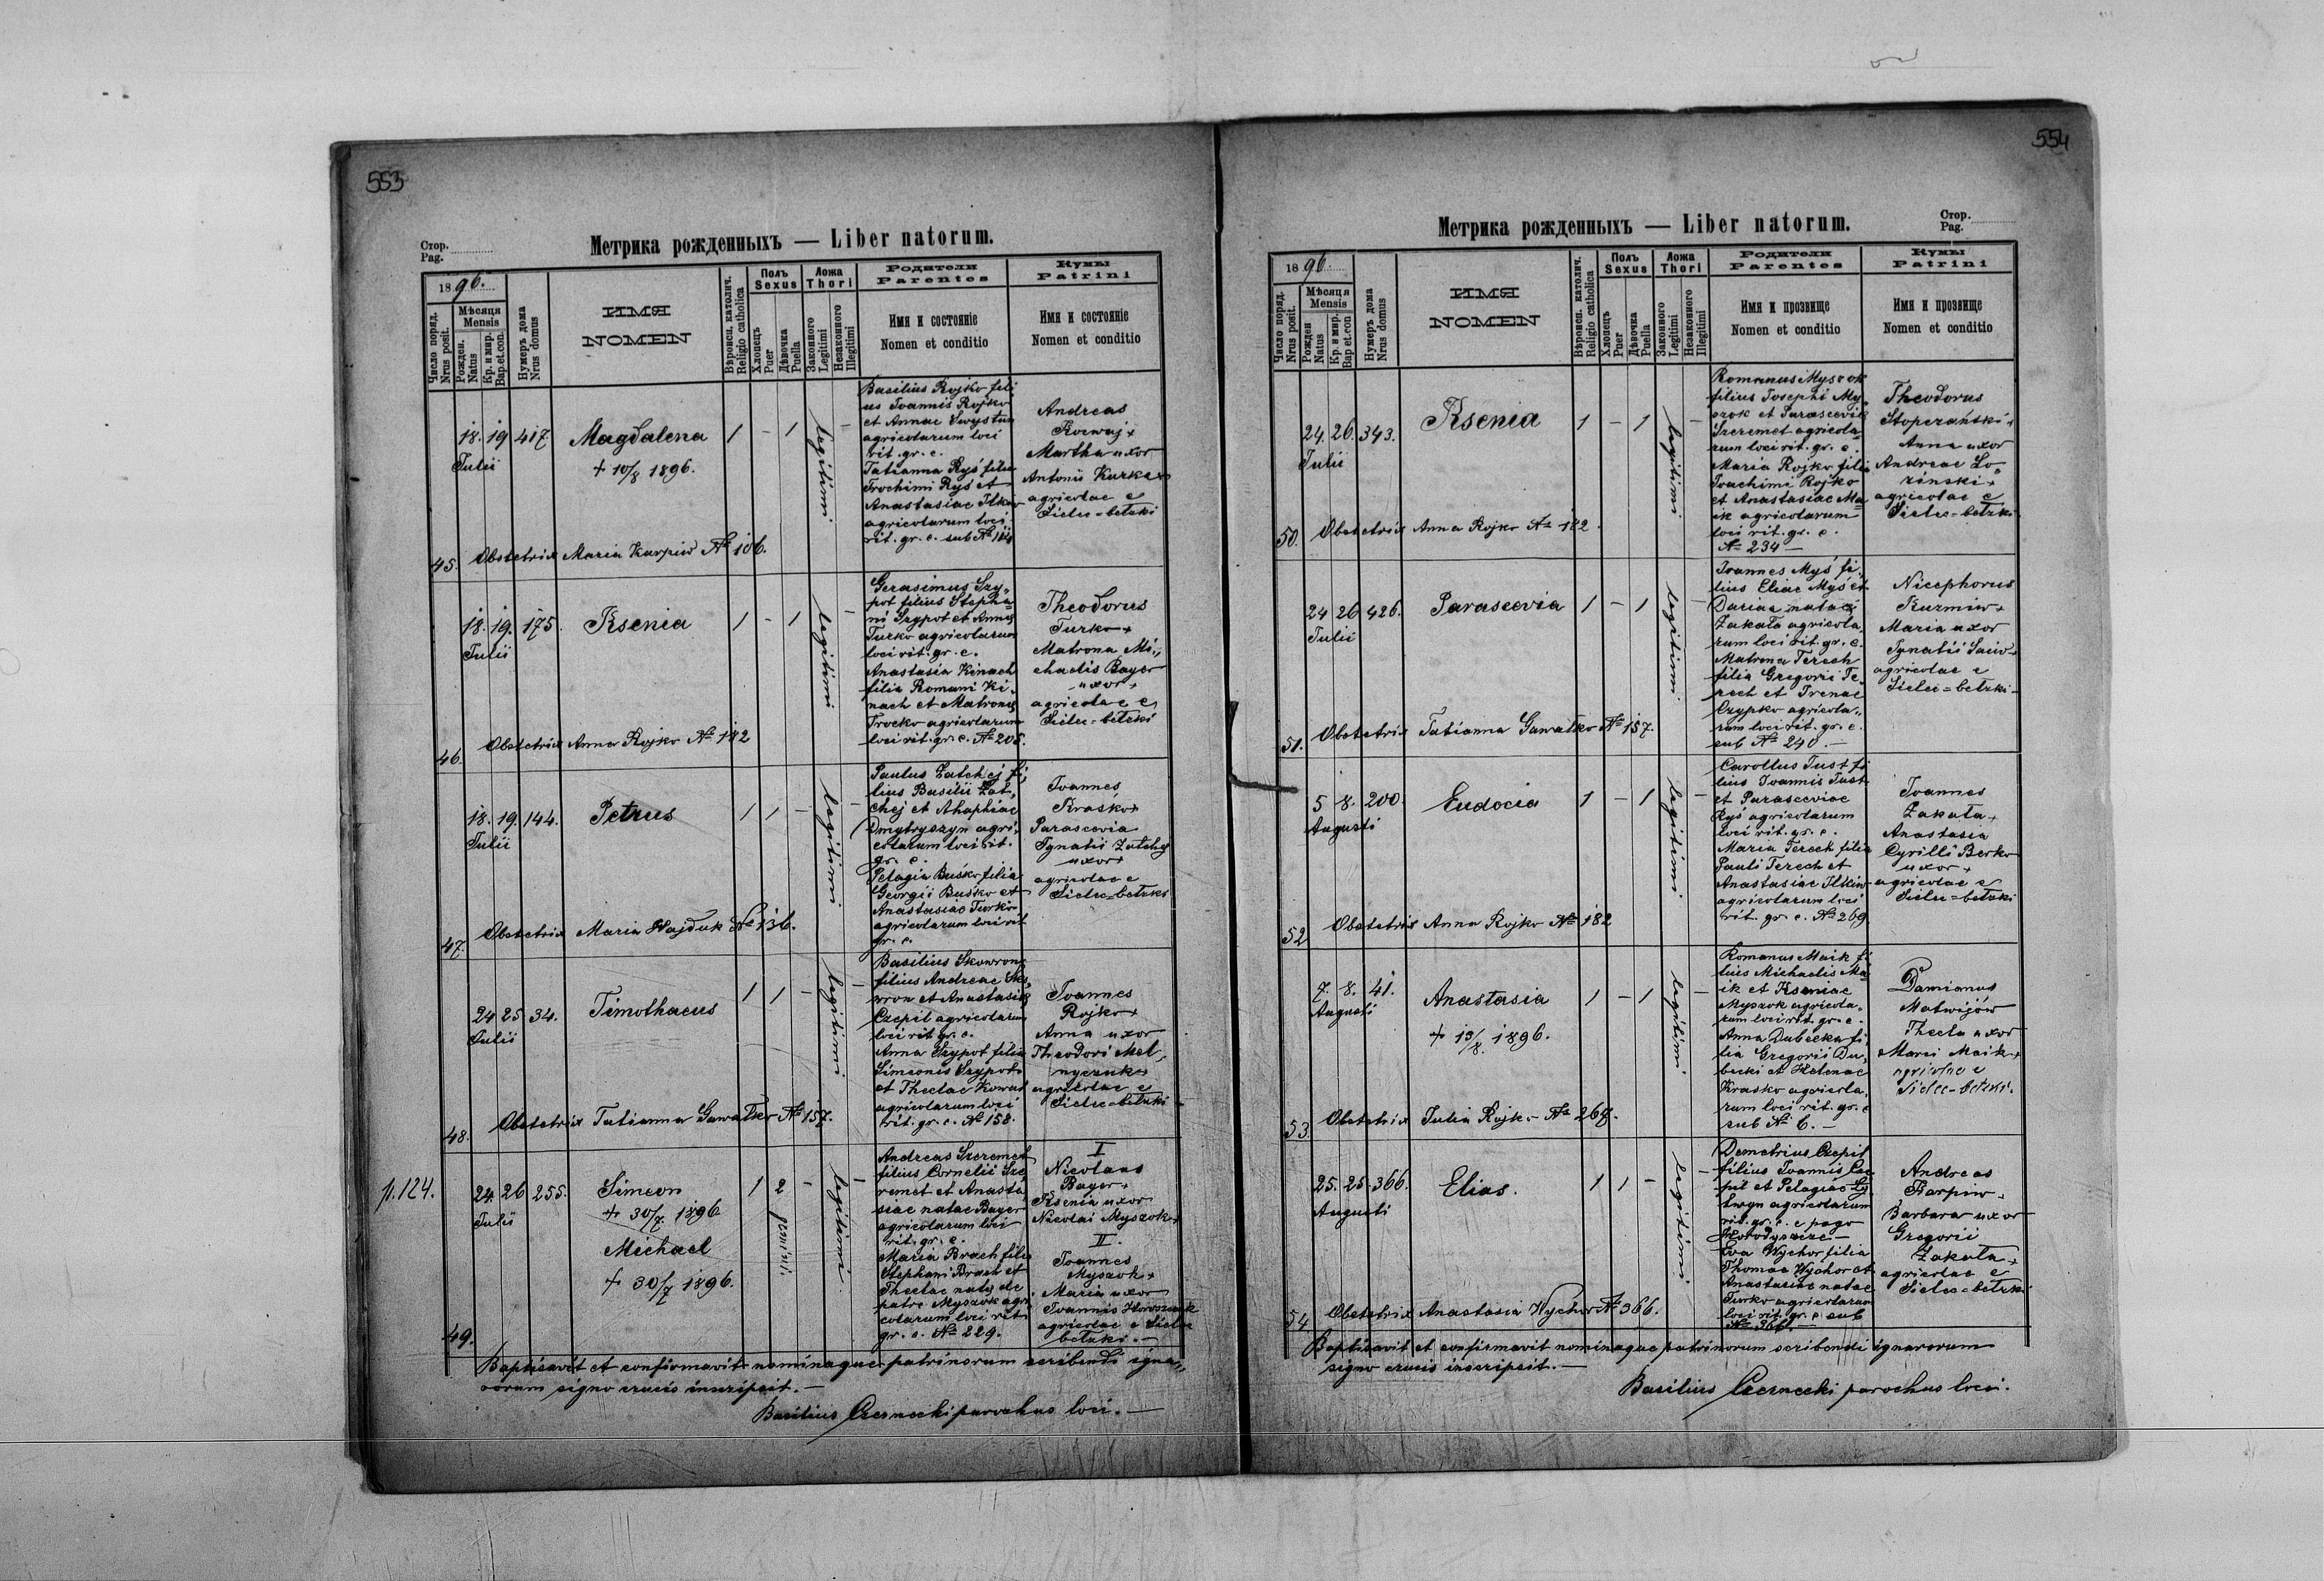 553
Стор.
Pag.
Метрика рожденныхъ — Liber natorum.
1896.
Число поряд.
Nrus posit.
Мѣсяця
Mensis
Рожден.
Natus
Кр. и мир.
Bap.et.con.
Нумеръ дома
Nrus domus
ИМЯ
NOMEN
Вѣроисп. католич.
Religio catholica
Полъ
Sexus
Хлопецъ
Puer
Дѣвочка
Puella
Ложа
Thori
Законного
Legitimi
Незаконного
Illegitimi
Родители
Parentes
Имя и состояніе
Nomen et conditio
Кумы
Patrini
Имя и состояніе
Nomen et conditio
45.
18. 19 417.
Julii
Magdalena
+ 10/8 1896.
1 - 1 legitimi -
Basilius Rojko fili
us Joannis Rojko
et Annae Swystun
agricolarum loci
rit. gr. c.
Tatianna Ryś filia
Trochimi Ryś et
Anastasiae Ilkiw
agricolarum loci
rit. gr. c. sub №
Andreas
Martha uxor
Antonii Kurka +
agricolae e
Sielec=bełzki
Obstetrix Maria Karpiw № 106.
46.
18. 19. 175.
Julii
Ksenia
1 - 1 legitimi -
Gerasimus Szy„
pot filius Stepha„
ni Szypot et Annae
Turko agricolarum
loci rit. gr. c.
Anastasia Kinach
filia Romani Ki„
nach et Matronae
Trocko agricolarum
loci rit. gr. c. № 205.
Theodorus
Turko +
Matrona Mi„
chaelis Bayer
uxor +
agricolae e
Sielec=bełzki
Obstetrix Anna Rojko № 182
47.
18. 19. 144.
Julii
Petrus
1 1 - legitimi -
Paulus Zatchej fi„
lius Basilii Zat„
chej et Ahaphiae
Dmytryszyn agri„
colarum loci rit.
gr. c.
Pelagia Buśko filia
Georgii Buśko et
Anastasiae Turko
agricolarum loci rit
gr. c.
Joannes
Kraśko +
Parascevia
Ignatii Zatchej
uxor +
agricolae e
Sielec=bełzki
Obstetrix Maria Hajduk № 136.
48.
24 25 34.
Julii
Timothaeus
1 1 - legitimi -
Basilius Skowron
filius Andreae Sko„
wron et Anastasiae
Czepil agricolarum
loci rit gr. c.
Anna Szypot filia
Simeonis Szypot
et Theclae Kowal
agricolarum loci
rit. gr. c. № 158.
Joannes
Rojko +
Anna uxor
Theodori Mel„
nyczuk +
agricolae e
Sielec=bełzki
Obstetrix Tatianna Gawalko № 157.
p. 124.
49.
24. 26 255.
Julii
Simeon
+ 30/7 1896
Michael
+ 30/7 1896.
1 2 - legitimi -
Andreas Szeremet
filius Cornelii Sze„
remet et Anasta„
siae natae Bayer
agricolarum loci
rit. gr. c.
Maria Brach filia
Stephani Brach et
Theclae nata de
patre Myszok agri„
colarum loci rit
gr. c. № 229.
I
Nicolaus
Bayer +
Ksenia uxor
Nicolai Myszok +
II.
Joannes
Myszok +
Maria uxor
Joannis
agricolae e Sielec
bełzki. —
Baptisavit et confirmavit nominaque patrinorum scribendi igna„
rorum signo crucis inscripsit. —
Basilius Czernecki parochus loci. —
554
Стор.
Pag.
Метрика рожденныхъ — Liber natorum.
1896.
Число поряд.
Nrus posit.
Мѣсяця
Mensis
Рожден
Natus
Кр. и мир.
Bap et.con
Нумеръ дома
Nrus domus
ИМЯ
NOMEN
Вѣроисп. католич.
Religio catholica
Полъ
Sexus
Хлопецъ
Puer
Дѣвочка
Puella
Ложа
Thori
Законного
Legitimi
Незаконного
Illegitimi
Родители
Parentes
Имя и прозвище
Nomen et conditio
Кумы
Patrini
Имя и прозвище
Nomen et conditio
50.
24. 26. 343.
Julii
Ksenia
1 - 1 legitimi -
Romanus Myszok
filius Josephi My„
szok et Parasceviae
Szeremet agricola„
rum loci rit. gr. c.
Maria Rojko filia
Joachimi Rojko
et Anastasiae Ma„
ik agricolarum
loci rit. gr. c.
№ 234 —
Theodorus
Stoperański +
Anna uxor
Andreae Lo„
zinski +
agricolae e
Sielec=bełzki
Obstetrix Anna Rojko № 182.
51.
24 26 426.
Julii
Parascevia
1 - 1 legitimi -
Joannes Myś fi„
lius Eliae Myś et
Dariae natae
Zakała agricola„
rum loci rit. gr. c.
Matrona Terech
filia Gregorii Te„
rech et Irenae
Czypko agricola„
rum loci rit. gr. c.
sub № 240. —
Nicephorus
Kuzmiw +
Maria uxor
Ignatii Saiw +
agricolae e
Sielec=bełzki
Obstetrix Tatianna Gawalko № 157.
52
5 8. 200.
Augusti
Eudocia
1 - 1 legitimi -
Carollus Just fi
lius Joannis Just
et Parasceviae
Ryś agricolarum
loci rit. gr. c.
Maria Terech filia
Pauli Terech et
Anastasiae Ilkiw
agricolarum loci
rit. gr. c. № 269
Joannes
Zakała +
Anastasia
Cyrilli Berko
uxor +
agricolae e
Sielec=bełzki
Obstetrix Anna Rojko № 182
53
7. 8. 41.
Augusti
Anastasia
+ 19/8. 1896.
1 - 1 legitimi -
Romanus Maik fi
lius Michaelis Ma„
ik et Kseniae
Myszok agricola„
rum loci rit. gr. c.
Anna Dubecka fi„
lia Gregorii Du„
becki et Helenae
Krasko agricola„
rum loci rit. gr. c
sub № 6. —
Damianus
Matwijów
Thecla uxor
Marci Maik +
agricolae e
Sielec-bełzki.
Obstetrix Julia Rojko № 267.
54
25. 25. 366.
Augusti
Elias.
1 1 - legitimi -
Demetrius Czepil
filius Joannis Cze„
pil et Pelagiae
agricolarum
rit. gr. c. e pago
Eva Wychor filia
Thomae Wychor et
Anastasiae natae
Turko agricolarum
loci rit. gr. c. sub
№ 366. —
Andreas
Karpiw +
Barbara uxor
Gregorii
Zakała +
agricolae e
Sielec=bełzki
Obstetrix Anastasia Wychor № 366.
Baptisavit et confirmavit nominaque patrinorum scribendi ignarorum
signo crucis inscripsit. —
Basilius Czernecki parochus loci.